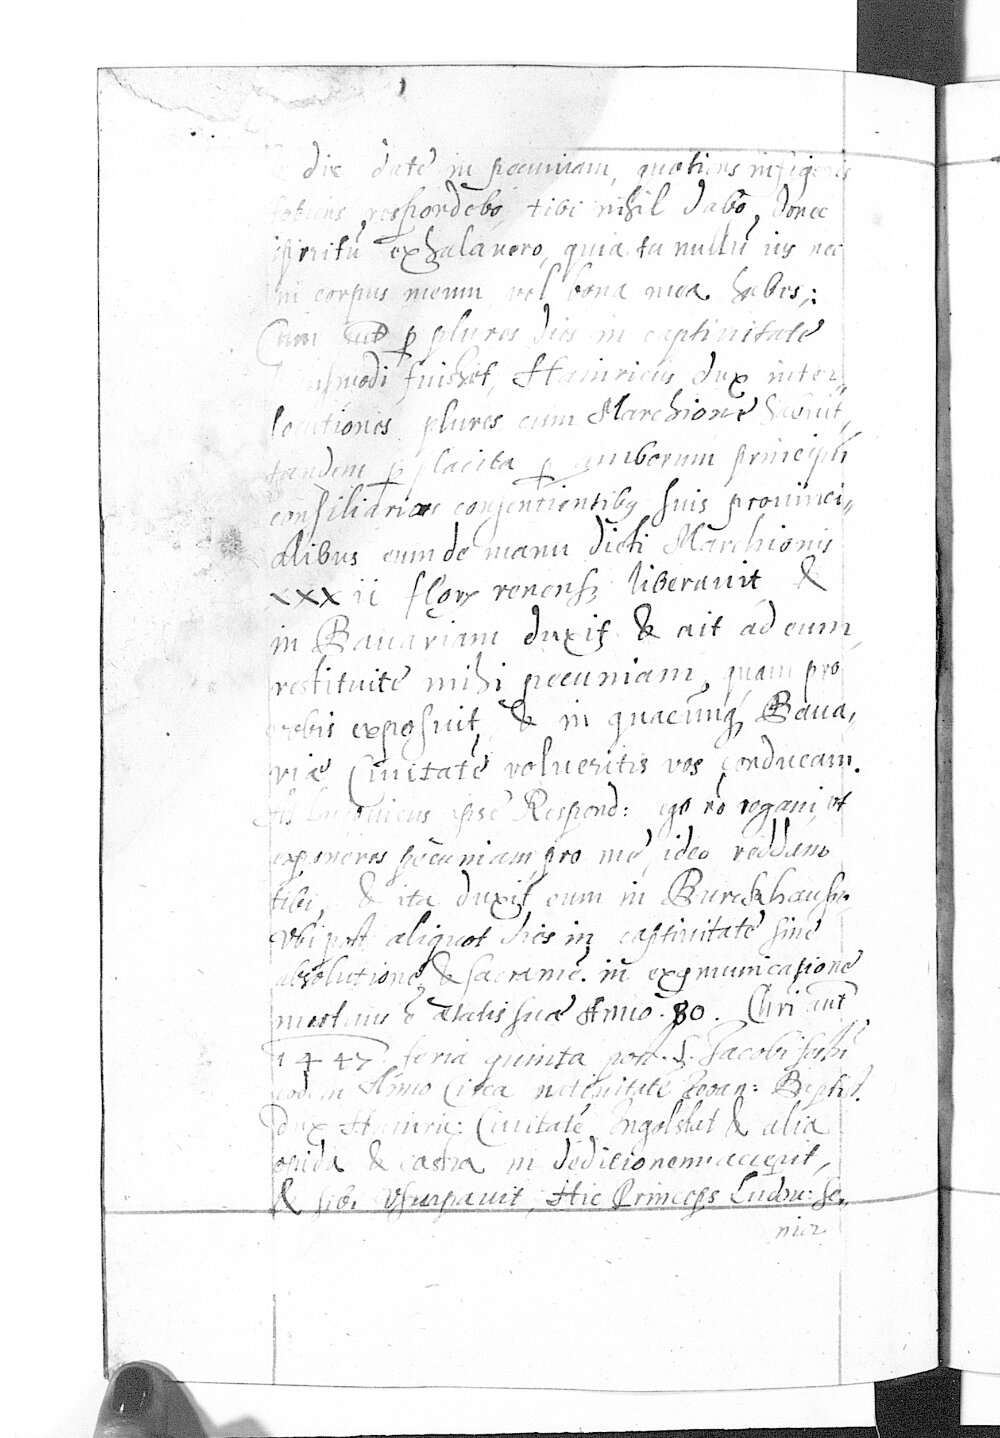 die date in pecuniam, quotiens infigeres
totiens respondebo, tibi nihil dabo, donec
spiritu exhalavero, quia tu nullu ius nec
in corpus meum vel bona mea habes;:
Cum aut p plures dies in captiuitate
fuisset, Hainricus dux inter„
locutiones plures cum Marchione habuit,
tandem p placita p amborum principu
consiliarios consentientibq suis prouinci„
alibus eum de manu dicti Marchionis
XXX ii flor renens liberauit &
in Bauariam duxit & ait ad eum,
restituite mihi pecuniam, quam pro
vobis exposuit, & in quacunq Baua,
riæ Ciuitate volueritis vos conducam.
Ludouicus ipse Respond: ego no rogaui, ut
exponeres pecuniam pro me, ideo reddam
tibi, & ita duxit eum in Burckhausn
Vbi post aliquot dies in captiuitate sine
absolutione & sacrame. in excomunicatione
mortuus e ætatis suæ Anno. 80. Chri aut
1447. feria quinta post. S. Jacobi
eodem Anno Circa natiuitate Joan: Baptist.
dux Hainric: Ciuitate Ingolstat & alia
opida & castra in deditionem accepit,
& sibi Vsurpauit, Hic Princeps Ludou: Se,
nior